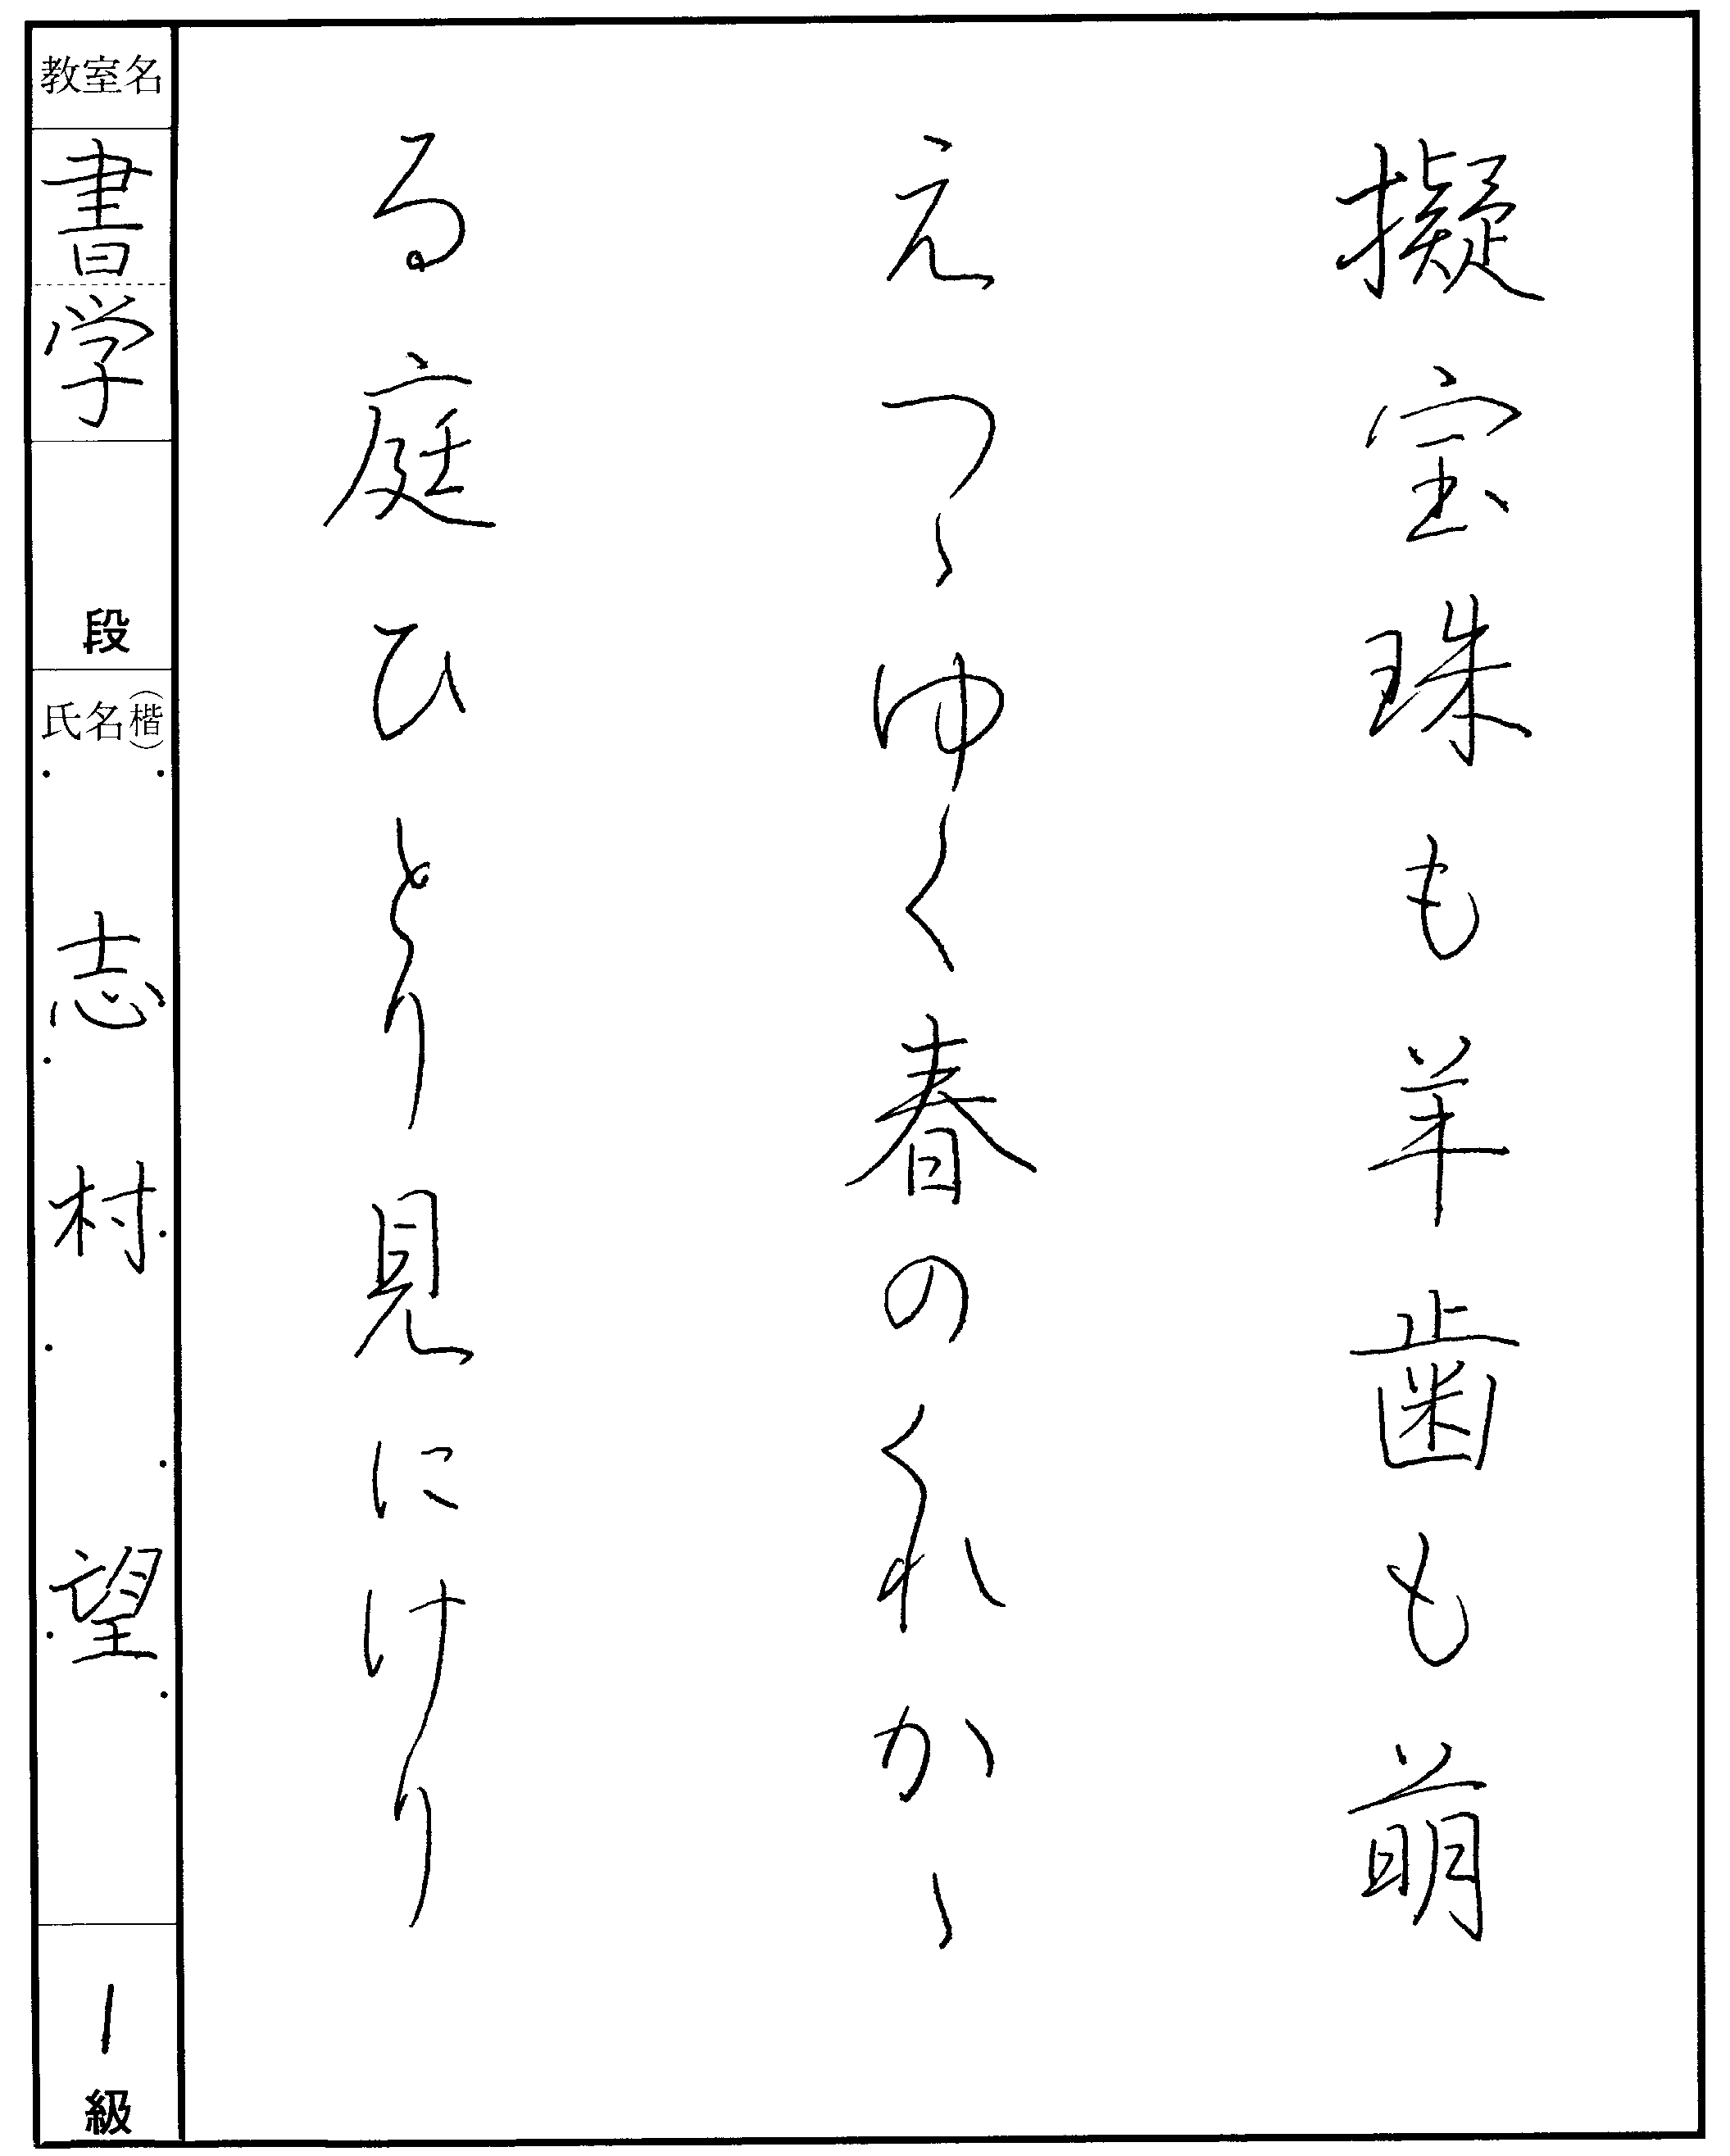 擬宝珠も羊歯も萌
えつゝゆく春のくれかゝ
る庭ひとり見にけり
教室名
書学
段
氏名(楷)
志村 望
1級